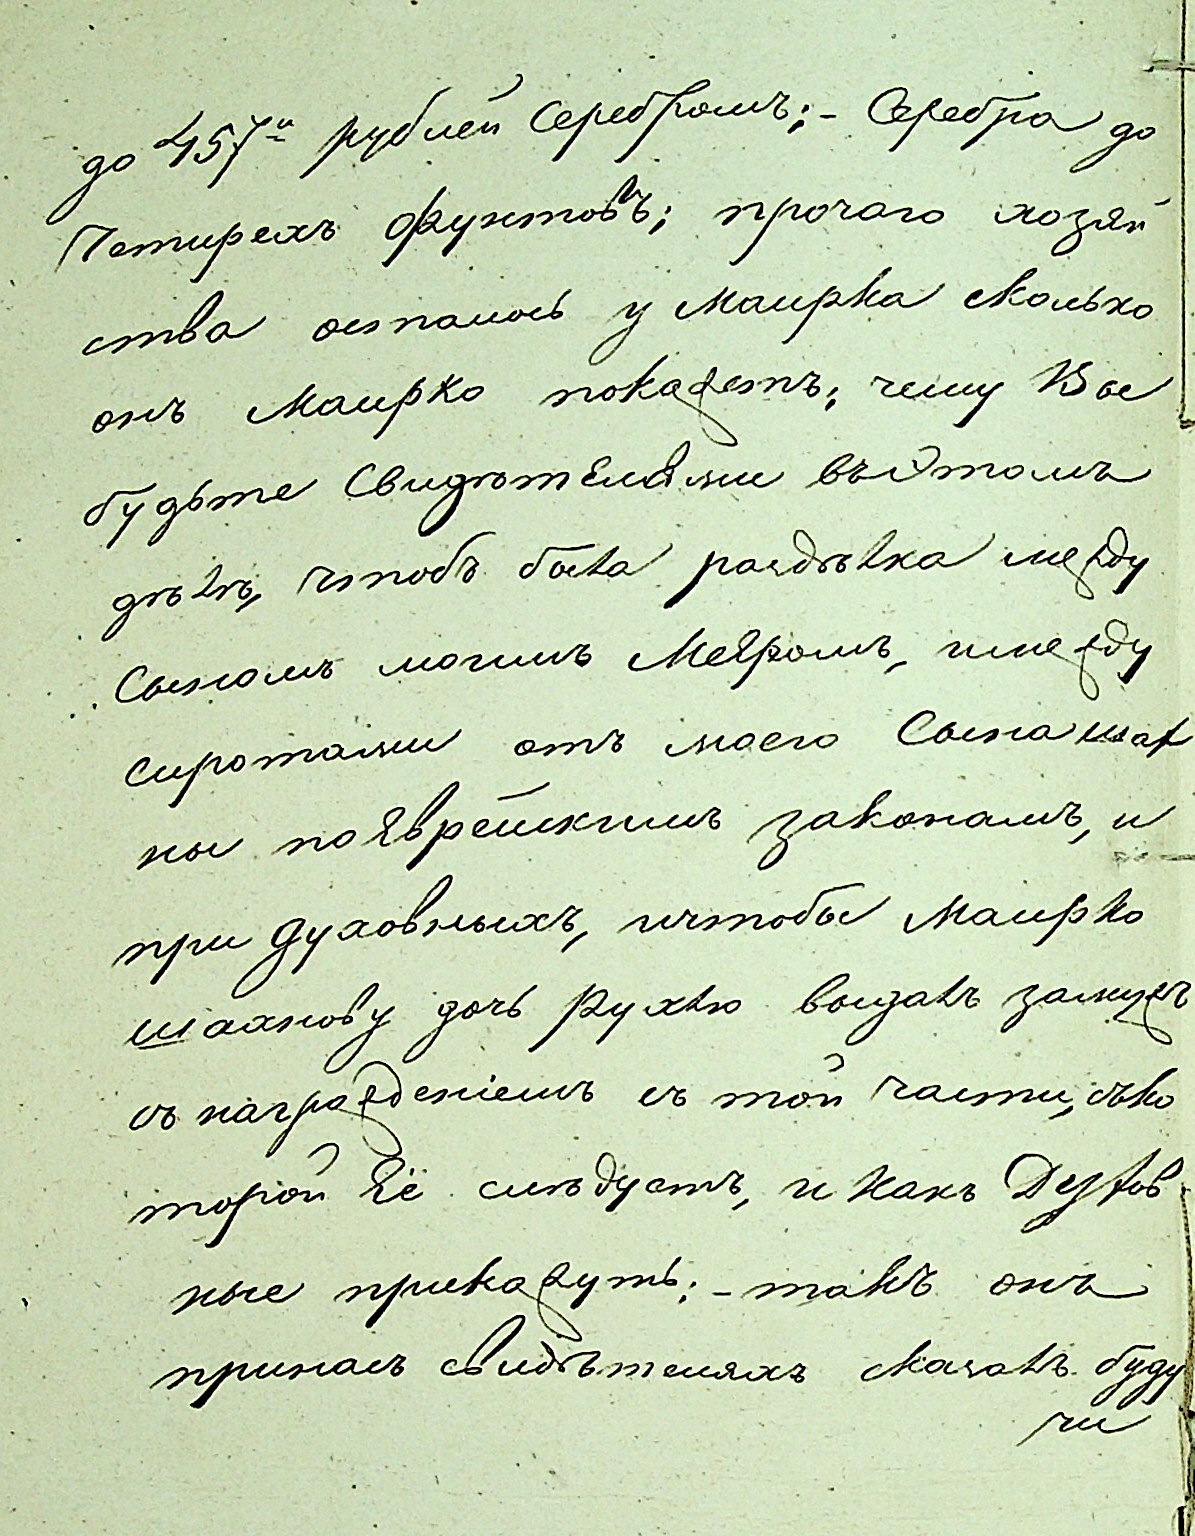 до 457и рублей Серебромъ; - Серебра до
Четирехъ фунтовъ; прочаго хозяй
ства осталось у Маирка сколько
онъ Маирко покажетъ; чему Вы
будьте Свидѣтелями въ Этомъ
дѣлѣ, чтобъ была раздѣлка между
Сыномъ моимъ Меяромъ, имежду
сиротами отъ моего Сына шах
ны по Яврейскимъ законамъ, и
при Духовныхъ, ичтобы Маирко
шахнову дочь Рухлю выдалъ замужъ
съ награжденіемъ съ той части, съко
торой Её слѣдуетъ, и какъ Духов
ные прикажутъ; - такъ онъ
принасъ свидѣтеляхъ сказалъ буду
чи